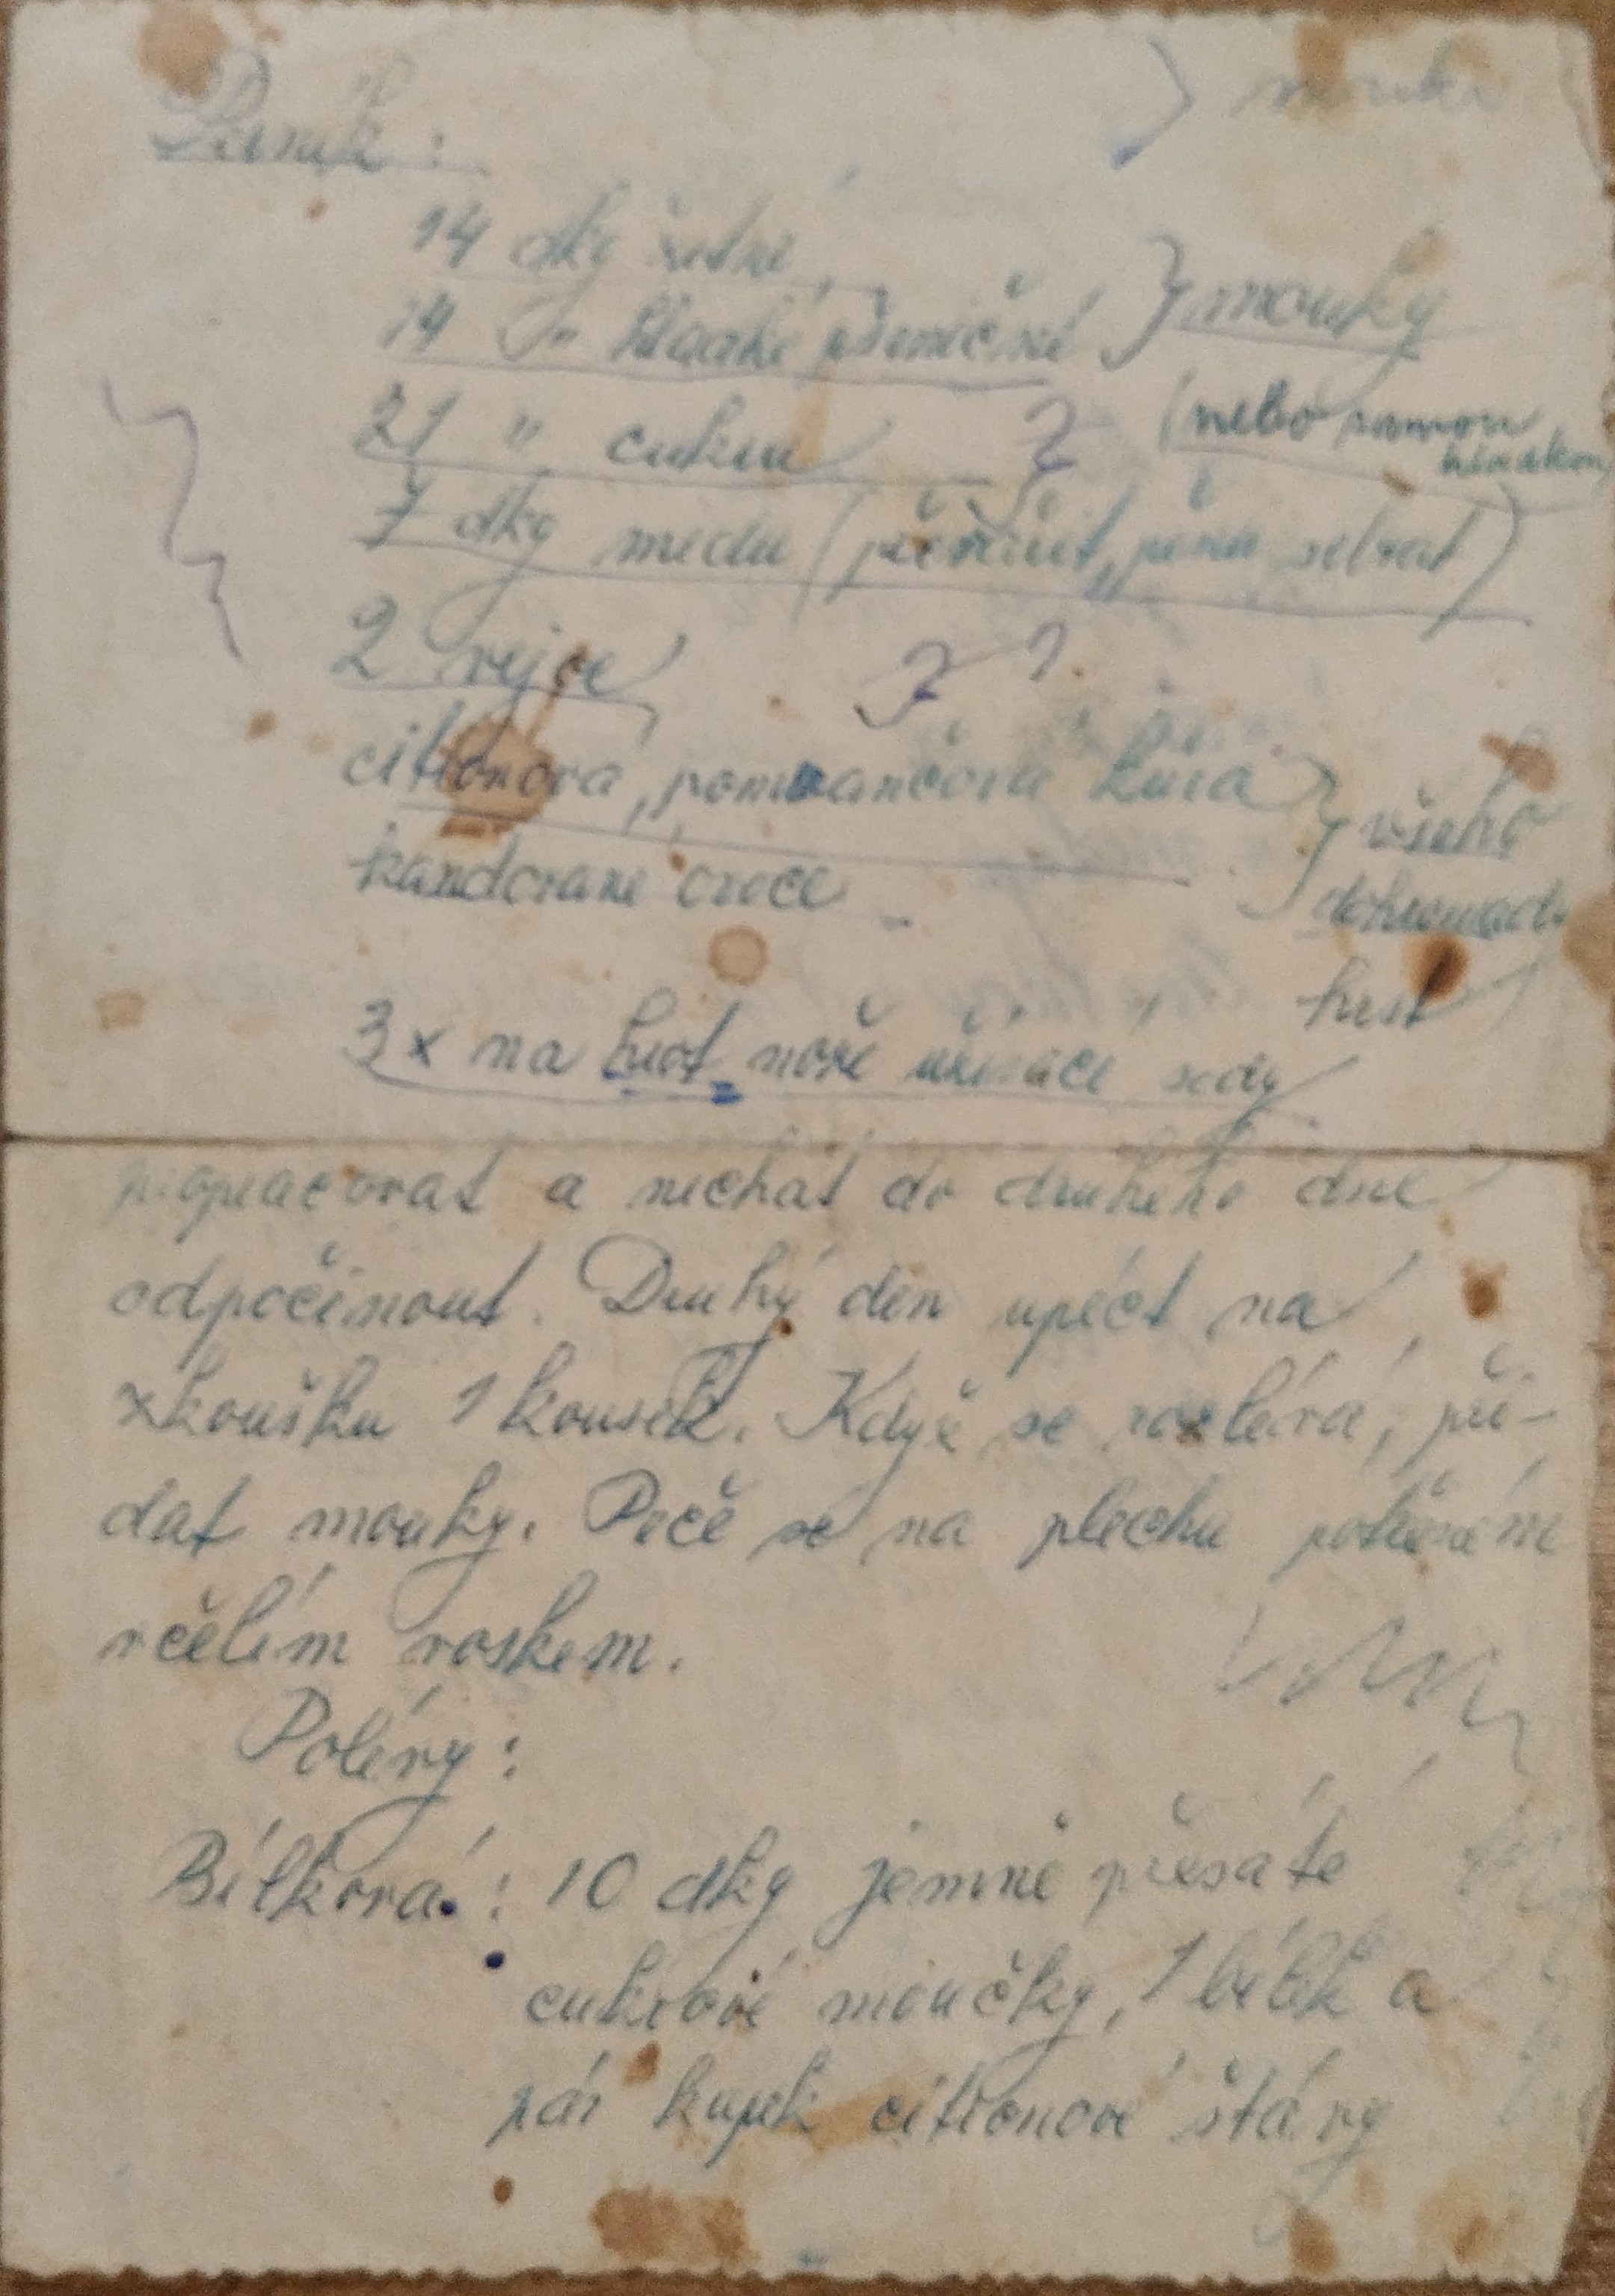 Perník :
} mouka
14 dkg žitné } mouky
14 " hladké pšeničné
21 " cukru (nebo samou hladkou)
7 dkg medu (převařit, pěnu sebrat)
2 vejce
citronová, pomerančová kůra } všeho
kandované ovoce dohromady
hrst
3 x na hrot nože užívací sody
propracovat a nechat do druhého dne
odpočinout. Druhý den upéct na
zkoušku 1 kousek. Když se rozlévá, při-
dat mouky. Peče se na plechu potřeném
včelím voskem.
Polévy :
Bílková : 10 dkg jemně přesáté
cukrové moučky, 1 bílek a
pár kapek citronové šťávy